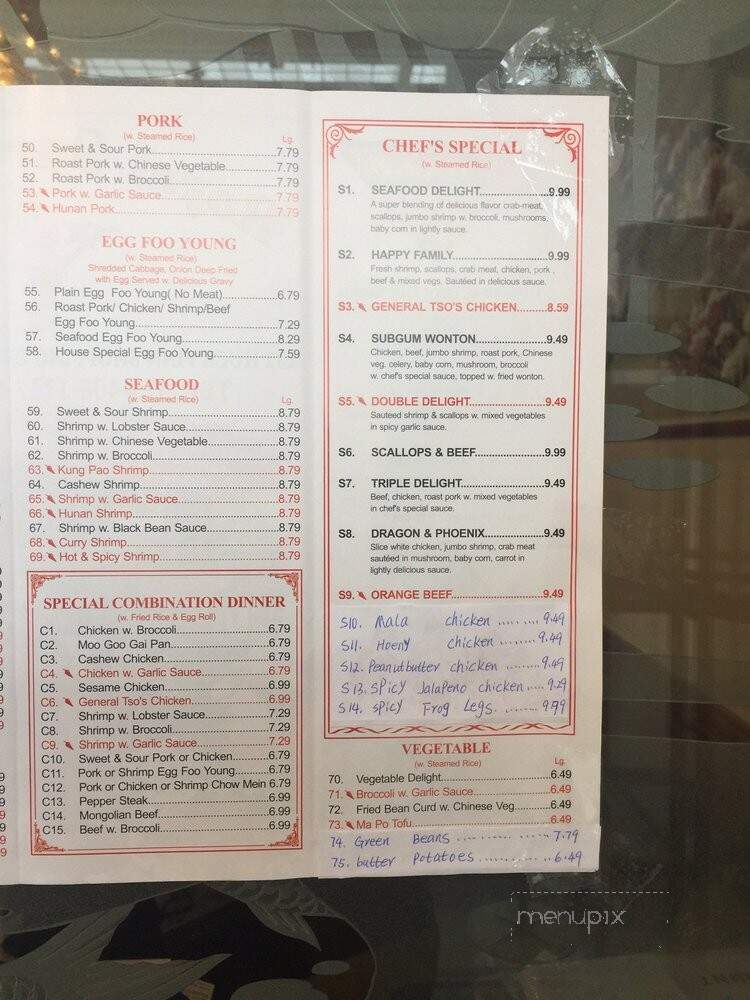 PORK
(w. Steamed Rice)
Lg.
50. Sweet & Sour Pork.....7.79
51. Roast Pork w. Chinese Vegetable.....7.79
52. Roast Pork w. Broccoli.....7.79
53. Pork w. Garlic Sauce.....7.79
54. Hunan Pork.....7.79
EGG FOO YOUNG
(w. Steamed Rice)
Shredded Cabbage, Onion Deep Fried
with Egg Served w. Delicious Gravy
55. Plain Egg Foo Young( No Meat).....6.79
56. Roast Pork/ Chicken/ Shrimp/Beef
Egg Foo Young.....7.29
57. Seafood Egg Foo Young.....8.29
58. House Special Egg Foo Young.....7.59
SEAFOOD
(w. Steamed Rice)
Lg.
59. Sweet & Sour Shrimp.....8.79
60. Shrimp w. Lobster Sauce.....8.79
61. Shrimp w. Chinese Vegetable.....8.79
62. Shrimp w. Broccoli.....8.79
63. Kung Pao Shrimp.....8.79
64. Cashew Shrimp.....8.79
65. Shrimp w. Garlic Sauce.....8.79
66. Hunan Shrimp.....8.79
67. Shrimp w. Black Bean Sauce.....8.79
68. Curry Shrimp.....8.79
69. Hot & Spicy Shrimp.....8.79
SPECIAL COMBINATION DINNER
(w. Fried Rice & Egg Roll)
C1. Chicken w. Broccoli.....6.79
C2. Moo Goo Gai Pan.....6.79
C3. Cashew Chicken.....6.79
C4. Chicken w. Garlic Sauce.....6.79
C5. Sesame Chicken.....6.99
C6. General Tso's Chicken.....6.99
C7. Shrimp w. Lobster Sauce.....7.29
C8. Shrimp w. Broccoli.....7.29
C9. Shrimp w. Garlic Sauce.....7.29
C10. Sweet & Sour Pork or Chicken.....6.79
C11. Pork or Shrimp Egg Foo Young.....6.79
C12. Pork or Chicken or Shrimp Chow Mein 6.79
C13. Pepper Steak.....6.99
C14. Mongolian Beef.....6.99
C15. Beef w. Broccoli.....6.99
CHEF'S SPECIAL
(w. Steamed Rice)
S1. SEAFOOD DELIGHT.....9.99
A super blending of delicious flavor crab-meat,
scallops, jumbo shrimp w. broccoli, mushrooms,
baby corn in lightly sauce.
S2. HAPPY FAMILY.....9.99
Fresh shrimp, scallops, crab meat, chicken, pork ,
beef & mixed vegs. Sautéed in delicious sauce.
S3. GENERAL TSO'S CHICKEN.....8.59
S4. SUBGUM WONTON.....9.49
Chicken, beef, jumbo shrimp, roast pork, Chinese
veg. celery, baby corn, mushroom, broccoli
w. chef's special sauce, topped w. fried wonton.
S5. DOUBLE DELIGHT.....9.49
Sauteed shrimp & scallops w. mixed vegetables
in spicy garlic sauce.
S6. SCALLOPS & BEEF.....9.99
S7. TRIPLE DELIGHT.....9.49
Beef, chicken, roast pork w. mixed vegetables
in chef's special sauce.
S8. DRAGON & PHOENIX.....9.49
Slice white chicken, jumbo shrimp, crab meat
sautéed in mushroom, baby corn, carrot in
lightly delicious sauce.
S9. ORANGE BEEF.....9.49
S10. Mala chicken ........ 9.49
S11. Hoeny chicken ........ 9.49
S12. Peanutbutter chicken ........ 9.49
S13. Spicy Jalapeno chicken.... 9.29
S14. Spicy Frog Legs. ........ 9.99
VEGETABLE
(w. Steamed Rice)
Lg.
70. Vegetable Delight.....6.49
71. Broccoli w. Garlic Sauce.....6.49
72. Fried Bean Curd w. Chinese Veg.....6.49
73. Ma Po Tofu.....6.49
74. Green Beans ............ 7.79
75. butter Potatoes ............ 6.49
menupix